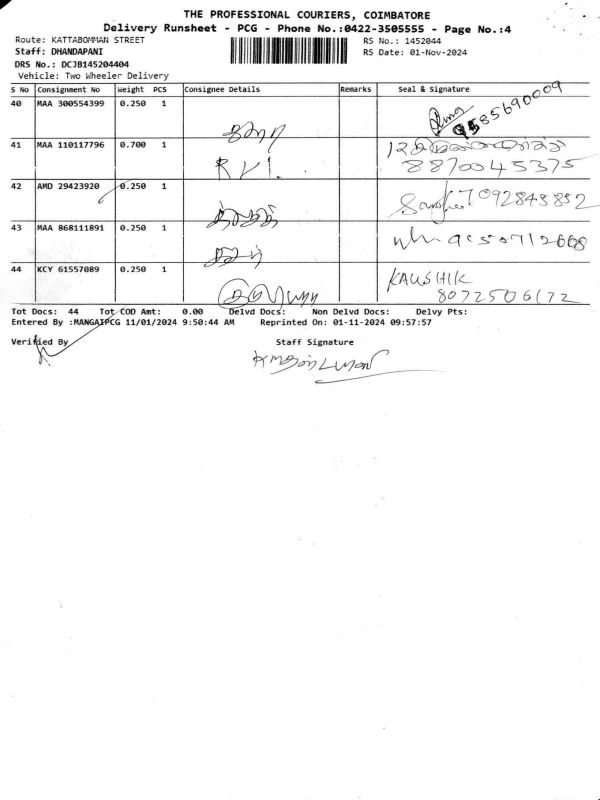 THE PROFESSIONAL COURIERS, COIMBATORE
Delivery Runsheet - PCG - Phone No.:0422-3505555 - Page No.:4
Route: KATTABOMMAN STREET RS No.: 1452044
Staff: DHANDAPANI RS Date: 01-Nov-2024
DRS No.: DCJB145204404
Vehicle: Two Wheeler Delivery
S No Consignment No Weight PCS Consignee Details Remarks Seal & Signature
40 MAA 300554399 0.250 1 9585690009
41 MAA 110117796 0.700 1
R V I. 8870045375
42 AMD 29423920 0.250 1 7092843852
43 MAA 868111891 0.250 1
44 KCY 61557089 0.250 1 KAUSHIK
8072506172
Tot Docs: 44 Tot COD Amt: 0.00 Delvd Docs: Non Delvd Docs: Delvy Pts:
Entered By :MANGAIPCG 11/01/2024 9:50:44 AM Reprinted On: 01-11-2024 09:57:57
Verified By Staff Signature